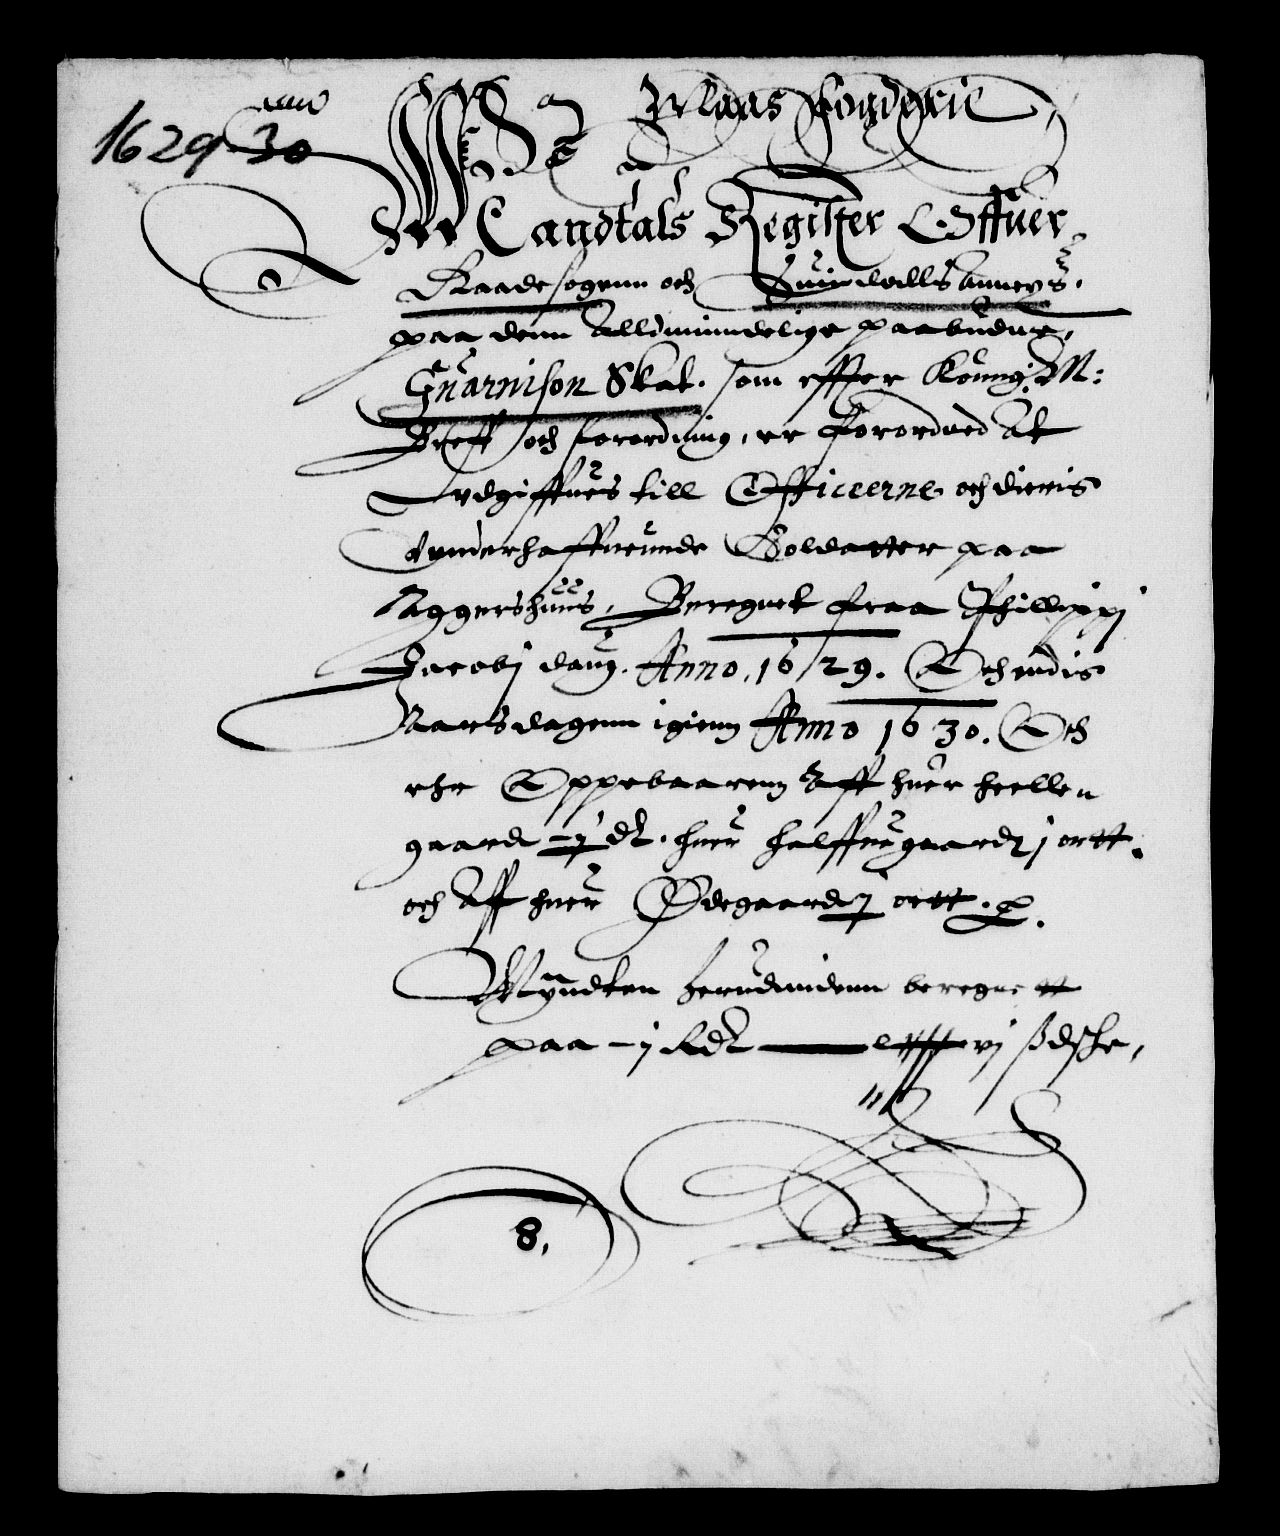 Maas fougderie
1629-30
Mandtals Register Offuer
Raade sogenn och Suindallss annexs.
paa denn Allmindelige paabudne,
Guarnison Skat. som effter Kong: M:
Breff och forordning, er forordned At
Vdgiffues till Officeerne och dieris
Vnderhaffuende Soldatter paa
Aggershuus, Beregnet fraa Phillippi
Jacobj daug. Anno, 1629. Och indtis
Aarsdagenn igienn Anno 1630. Och
ehr Oppebaarenn Aff huer heellen
gaard dlr. huer halffue gaard j ortt.
och Aff huer Ødegaard ortt.
Mŷndten herudindenn beregnett
paa Rdlr vj ß dske,
8,